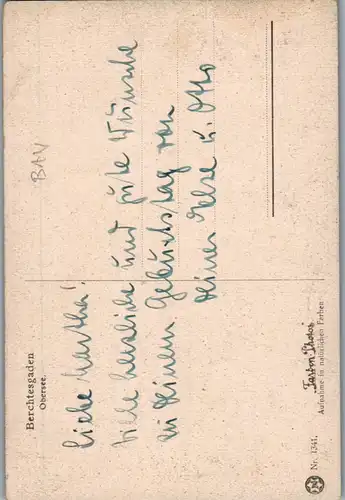 Berchtesgaden
Obersee.
BAV
Liebe Martha!
Viele herzliche und gute Wünsche
zu Deinem Geburtstag von
Deiner Else u. Otto
Farben-Photo
Aufnahme in natürlichen Farben
Nr. 1341.